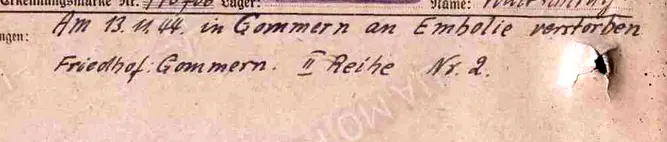 Erkennungsmarke Nr. Lager: Name:
Am 13.11.44. in Gommern an Embolie verstorben
ngen:
Friedhof: Gommern. II Reihe Nr. 2.